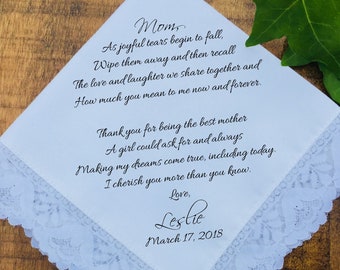 Mom,
As joyful tears begin to fall,
Wipe them away and then recall
The love and laughter we share together and
How much you mean to me now and forever.
Thank you for being the best mother
A girl could ask for and always
Making my dreams come true, including today.
I cherish you more than you know.
Love,
Leslie
March 17, 2018